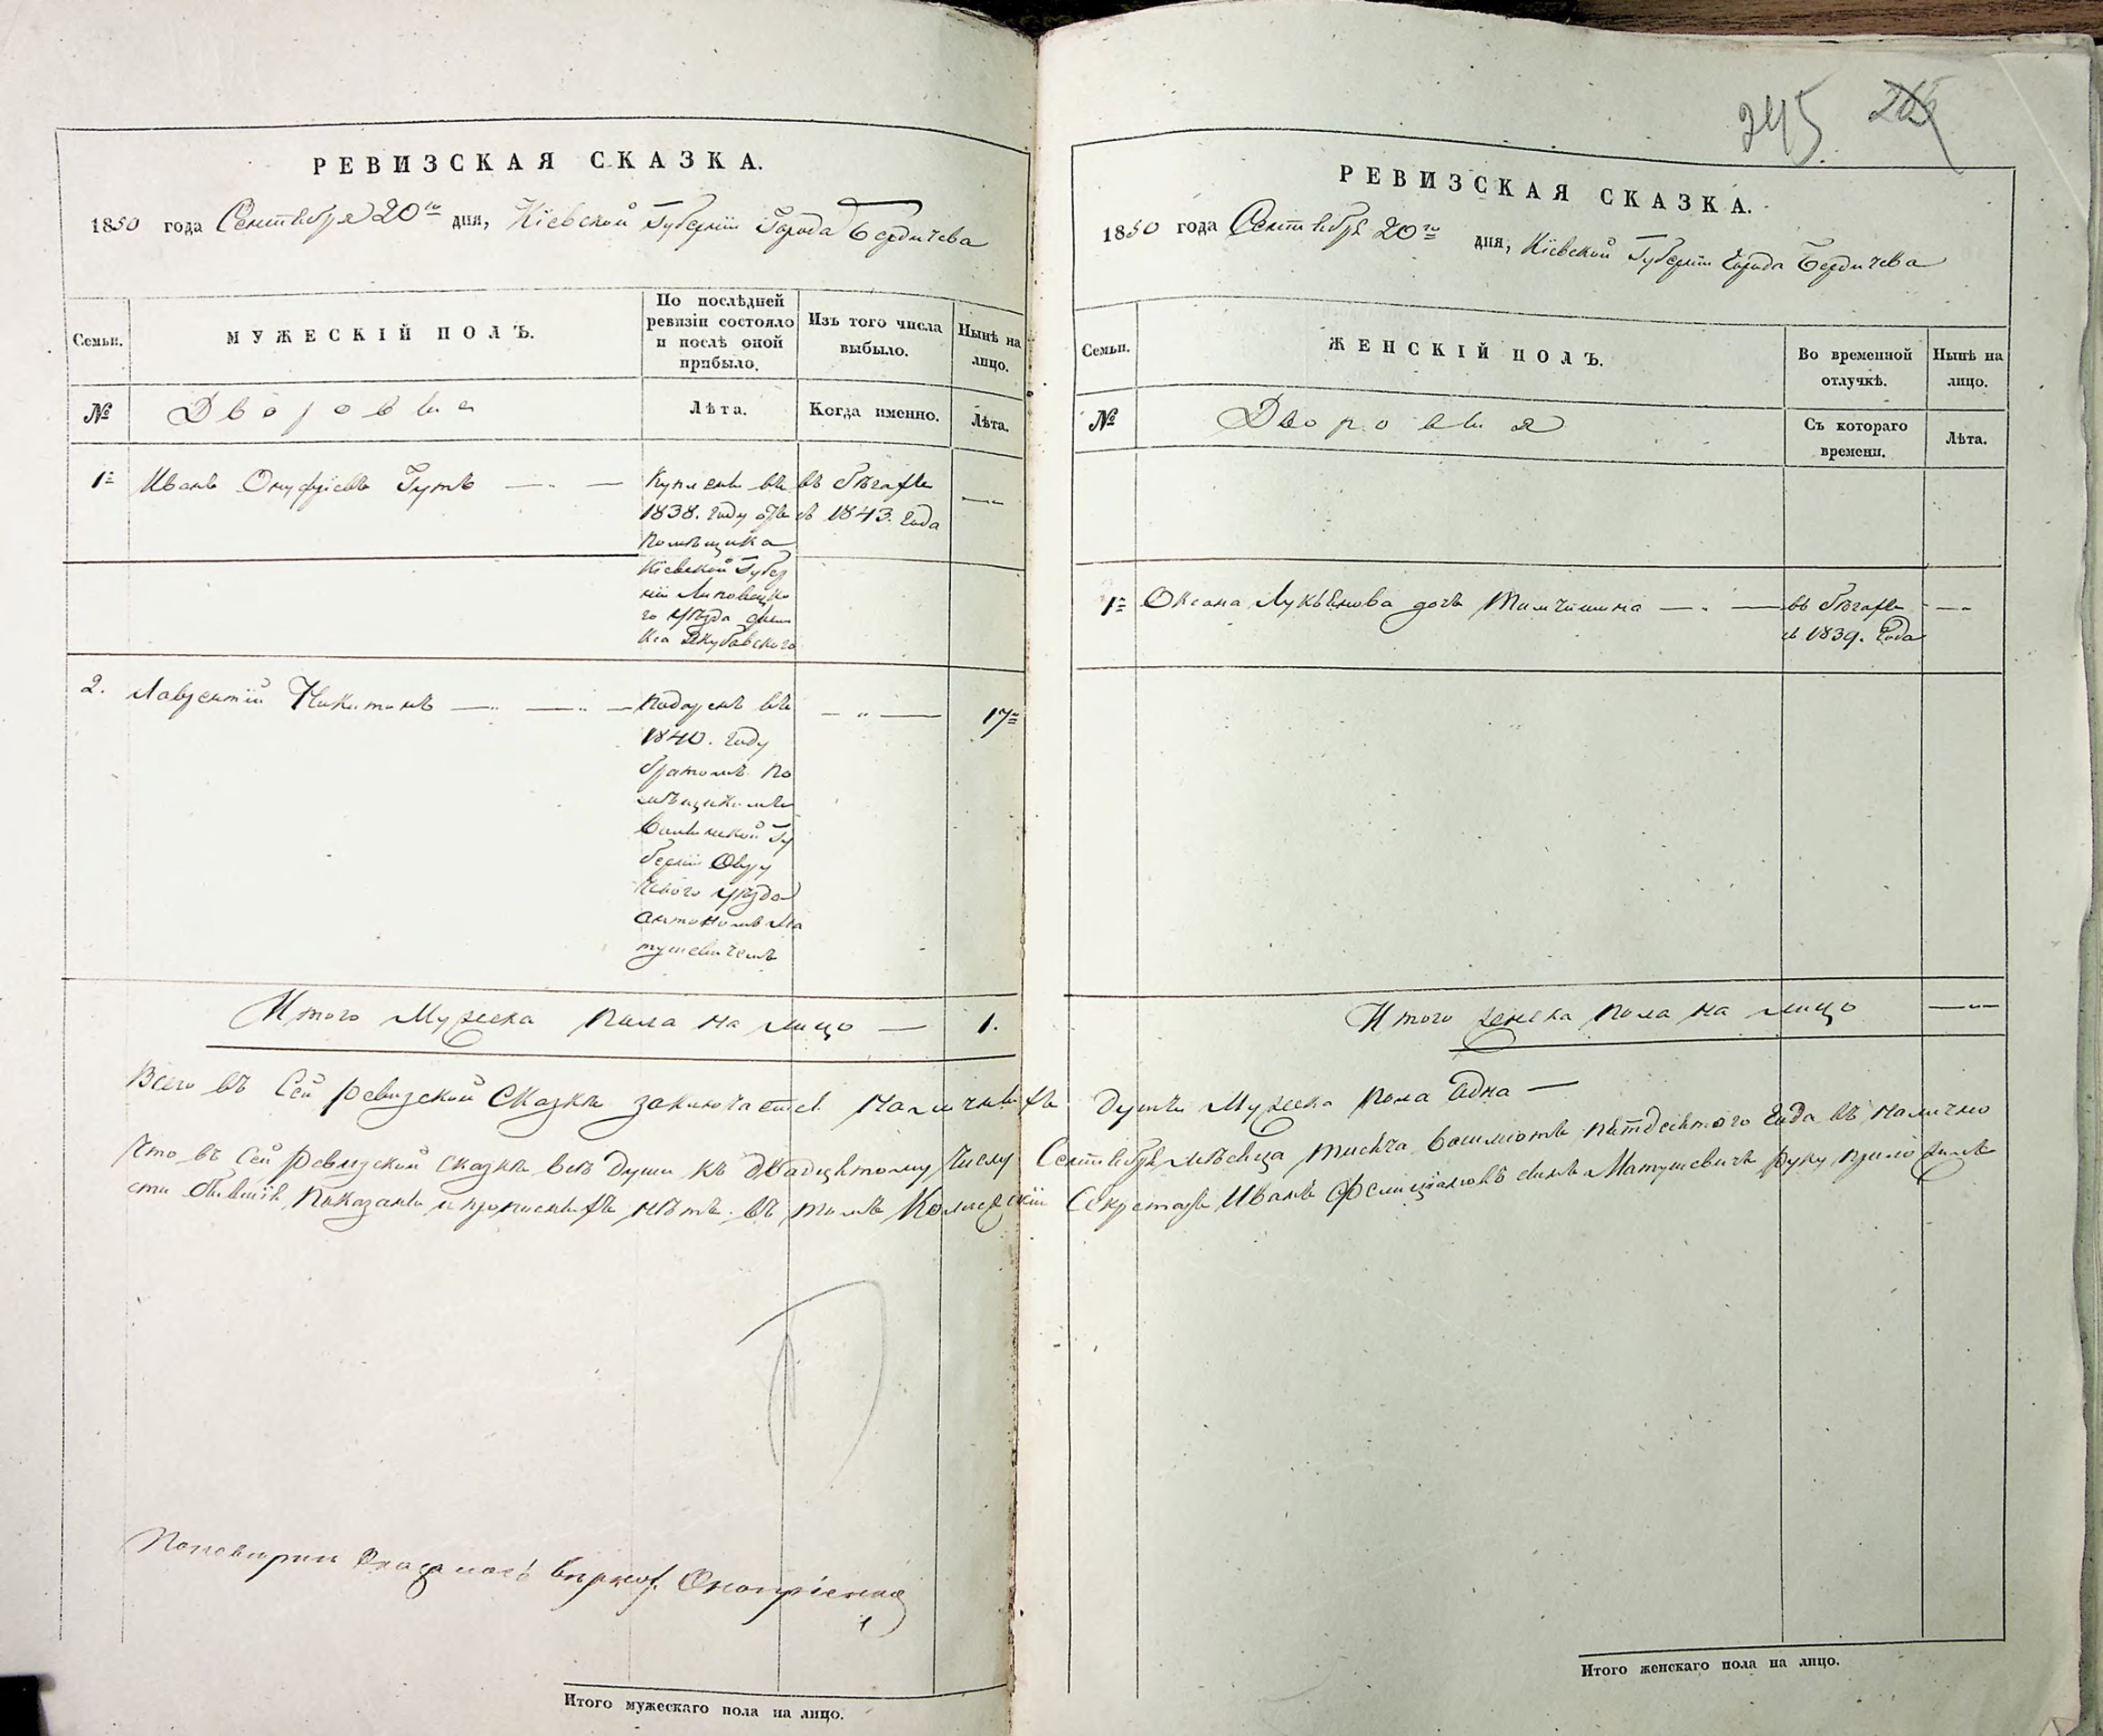 РЕВИЗСКАЯ СКАЗКА.
1850 года Сентября 20го дня, Кіевской Губерніи Города Бердичева
Семьи.
МУЖЕСКІЙ ПОЛЪ.
По послѣдней
ревизіи состояло
и послѣ оной
прибыло.
Изъ того числа
выбыло.
Нынѣ на
лицо.
№
Дворовыя
Лѣта.
Когда именно.
Лѣта.
1
Иванъ Онуфріевъ Гутъ
Купленъ въ
1838. году отъ
помѣщика
Кіевской Губер
ніи Липовецка
го уѣзда
Якубовского
въ бѣгахъ
съ 1843. года
2.
Лаврентій Никитинъ
Подаренъ въ
1840. году
братомъ по
мѣщикомъ
Волынской Гу
берніи Овру
чскаго уѣзда
Антономъ Ма
тушевичемъ
17
Итого Мужеска пола на лицо — 1.
Всего въ сей ревизской сказкѣ заключается наличныхъ
Что въ сей ревизской сказкѣ всѣ души къ двадцатому числу
сти бывшія показаны и прописныхъ нѣтъ. въ томъ Колежскій
Итого мужескаго пола на лицо.
245
РЕВИЗСКАЯ СКАЗКА.
1850 года Сентября 20го дня, Кіевской Губерніи Города Бердичева
Семьи.
ЖЕНСКІЙ ПОЛЪ.
Во временной
отлучкѣ.
Нынѣ на
лицо.
№
Дворовыя
Съ котораго
времени.
Лѣта.
1
Оксана Лукьянова дочь
въ бѣгахъ
съ 1839. года
Итого женска пола на лицо
душъ Мужеска пола одна —
Сентября мѣсяца тысяча восимсотъ пятдесятого года въ налично
Секретарь Иванъ Фелиціановъ сынъ Матушевичъ руку приложилъ
Итого женскаго пола на лицо.